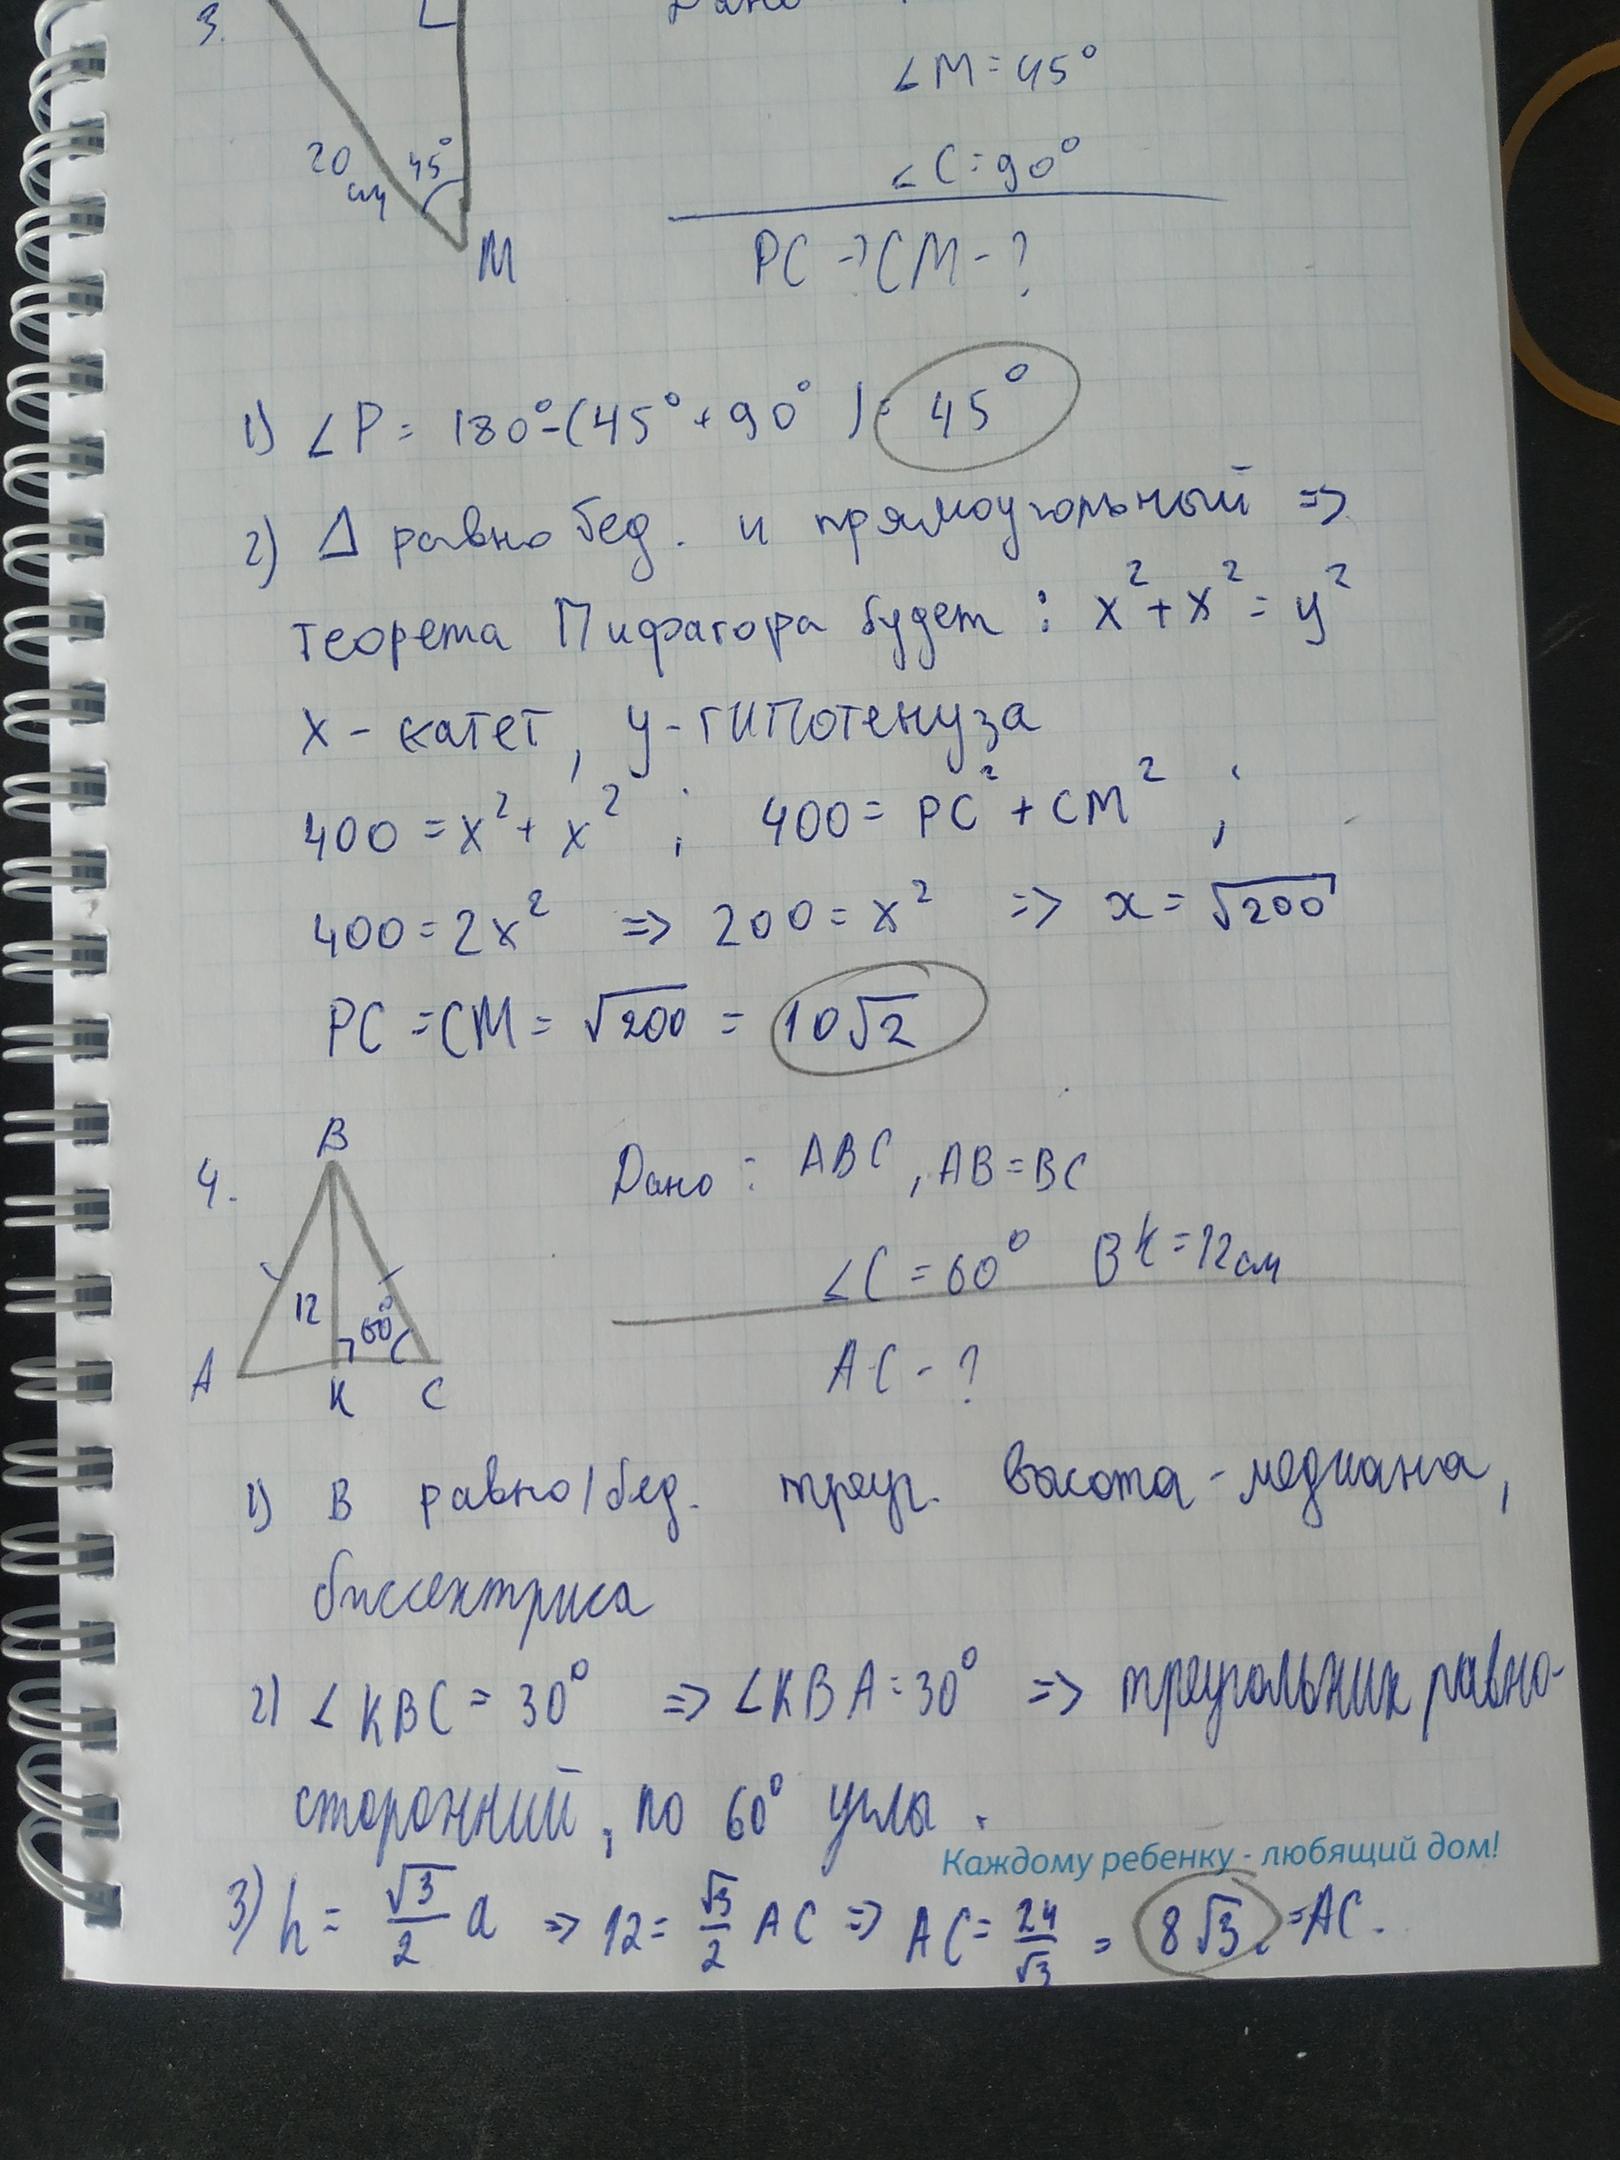 3.
Дано
∠M=45°
20 см 45°
∠C=90°
M
PC -? CM - ?
1) ∠P = 180°-(45°+90°)= 45°
2) Δ равнобед. и прямоугольный =>
теорема Пифагора будет : x²+x²=y²
x - катет, y - гипотенуза
400 = x²+ x² ; 400 = PC² + CM² ;
400 = 2x² => 200 = x² => x = √200
PC = CM = √200 = 10√2
4.
B
Дано : ABC, AB=BC
∠C = 60° BK=12см
12 60°
A K C
AC - ?
1) В равно/бед. треуг. высота - медиана,
биссектриса
2) ∠KBC = 30° => ∠KBA = 30° => треугольник равно-
сторонний, по 60° углы.
Каждому ребенку - любящий дом!
3) h = √3/2 a => 12 = √3/2 AC => AC = 24/√3 = 8√3. =AC.